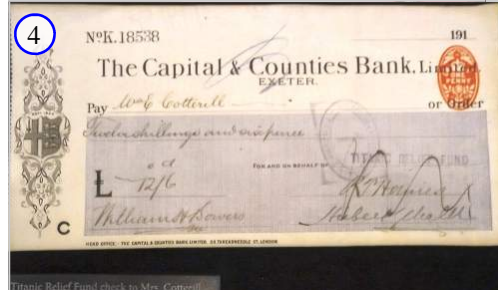 4
NºK.18538 191
The Capital & Counties Bank, Limited.
EXETER.
Pay Mrs E Cotterill or Order
Twelve shillings and sixpence
FOR AND ON BEHALF OF TITANIC RELIEF FUND
s d
£ 12/6
William H Bowers
C
HEAD OFFICE: THE CAPITAL & COUNTIES BANK LIMITED. 39 THREADNEEDLE ST. LONDON
Titanic Relief Fund check to Mrs. Cotterill